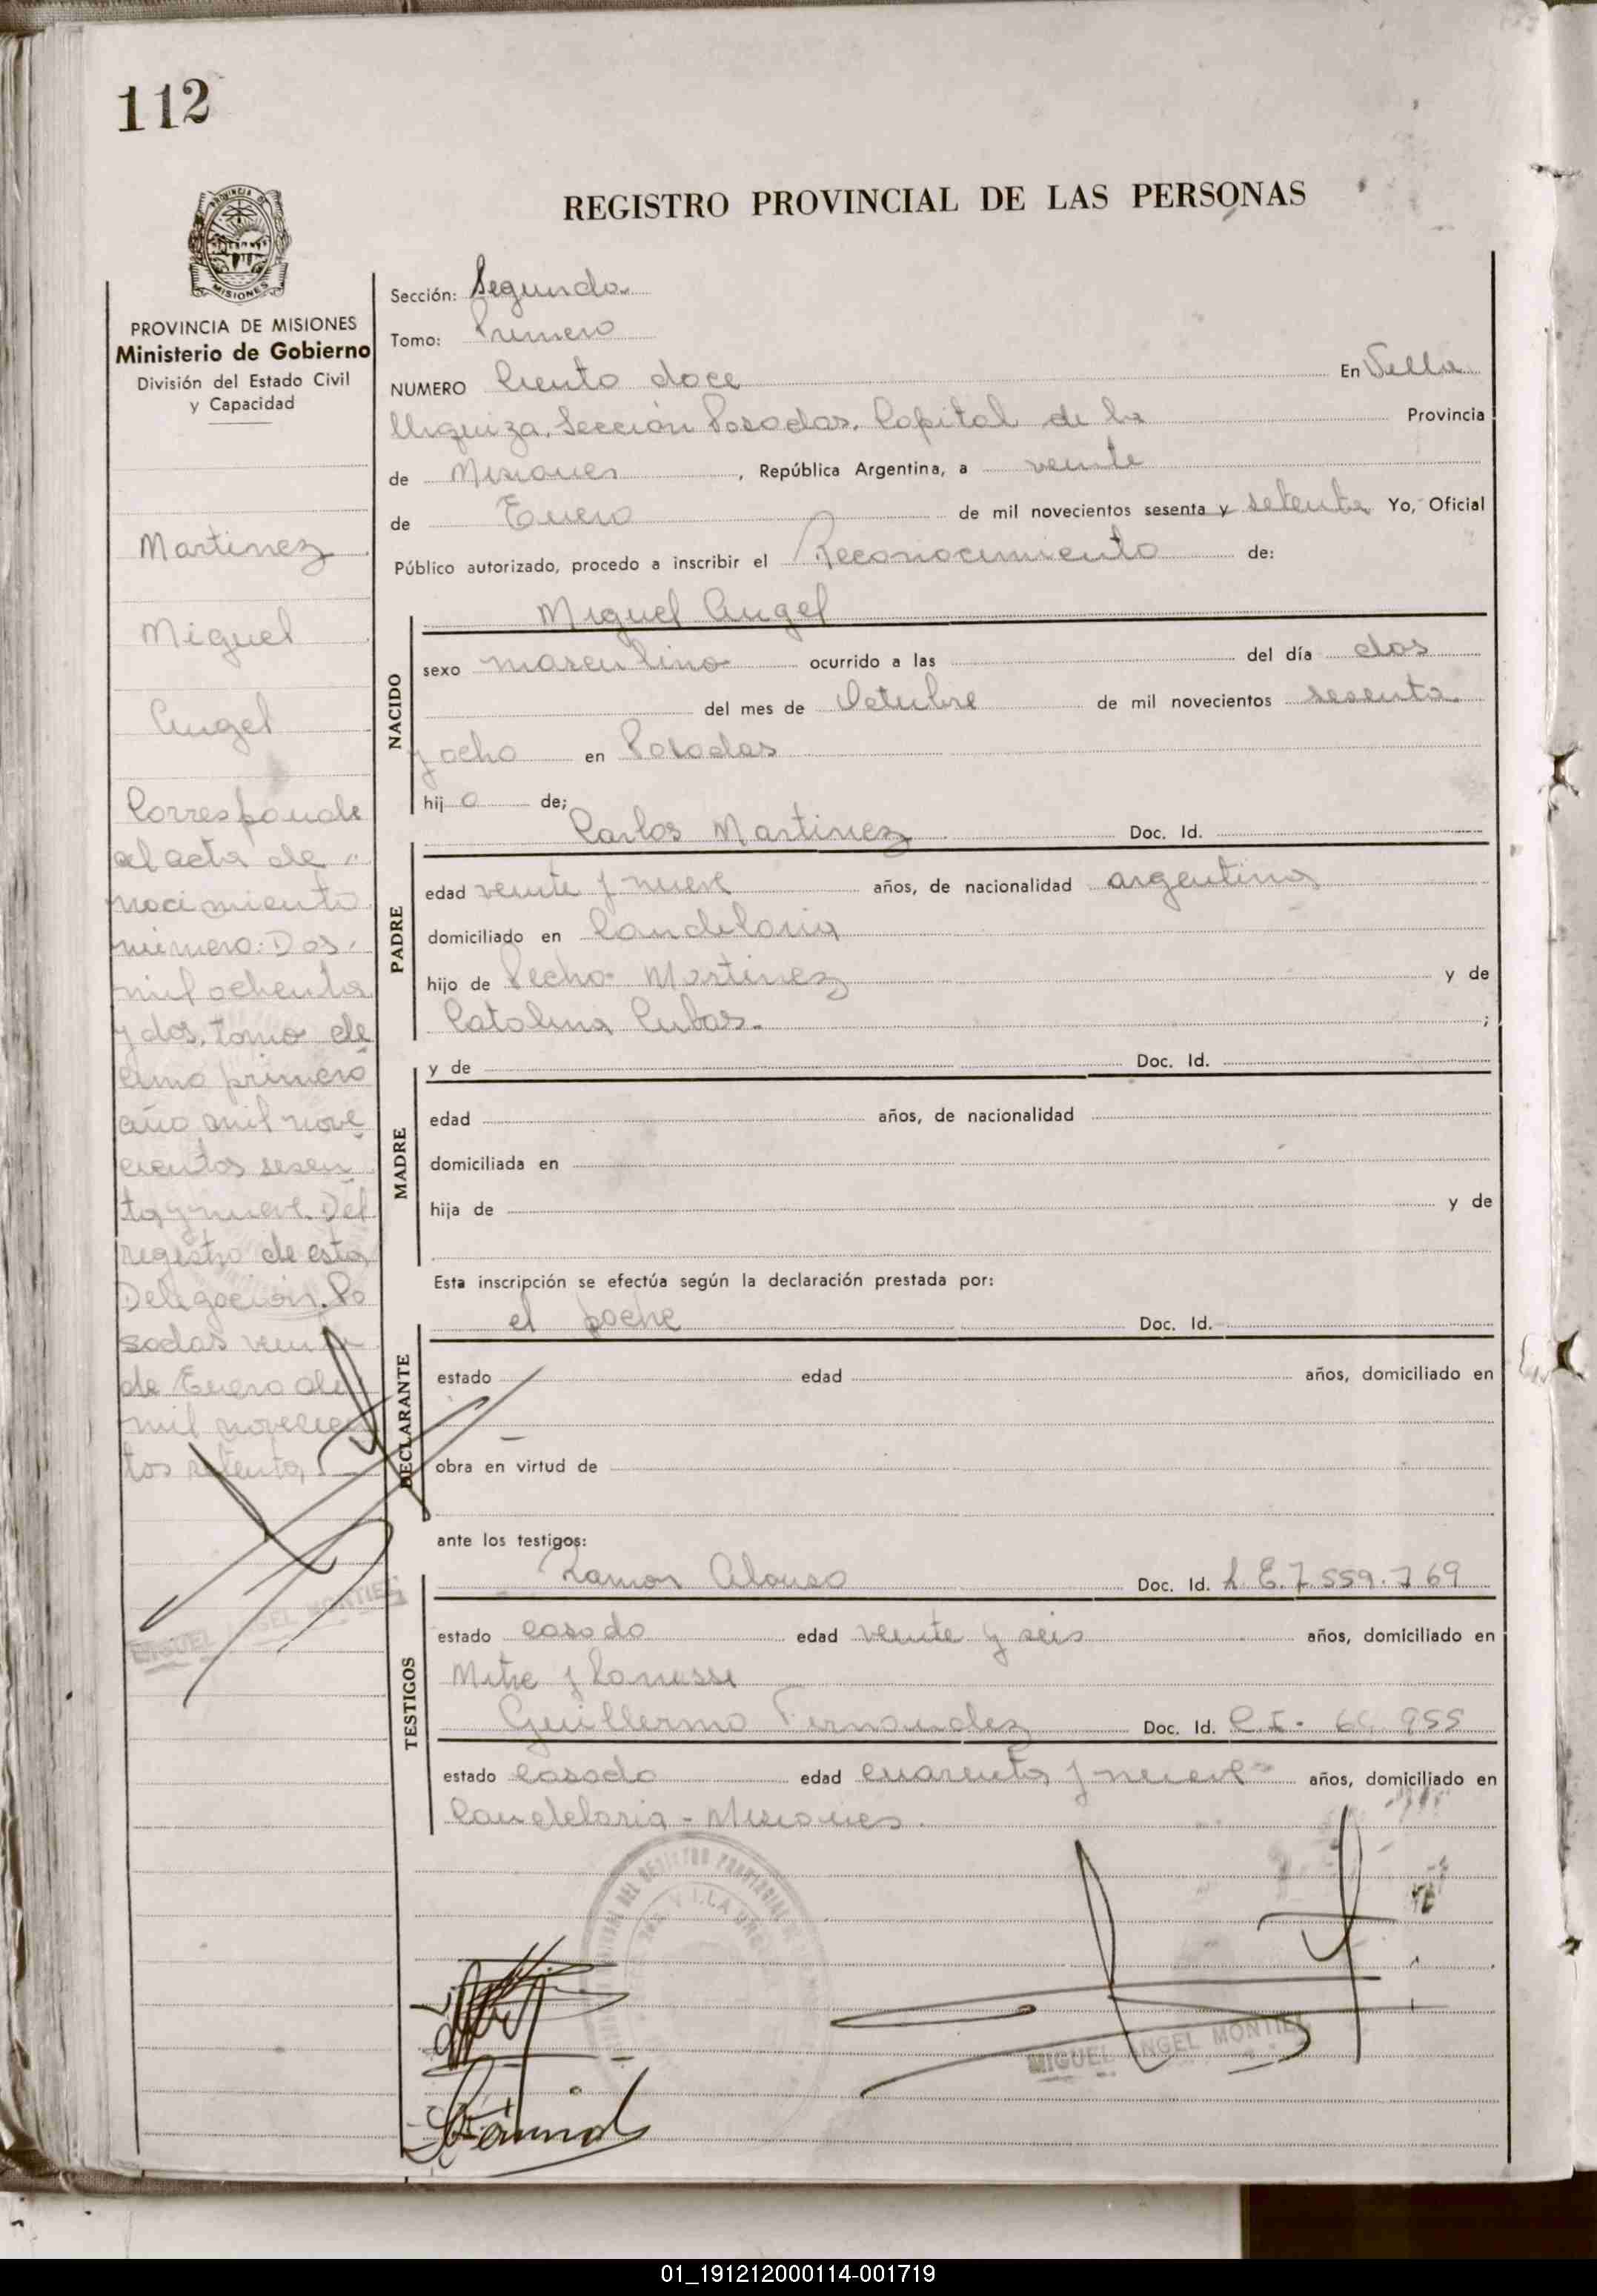 112
REGISTRO PROVINCIAL DE LAS PERSONAS
MISIONES
PROVINCIA DE MISIONES
Ministerio de Gobierno
División del Estado Civil
y Capacidad
Martinez
Miguel
Angel
Corresponde
al acta de
nacimiento
número: Dos
mil ochenta
y dos, tomo dé
cimo primero
año mil nove
cientos sesen
ta y nueve. Del
registro de esta
Delegación. Po
sadas veinte
de Enero de
mil novecien
tos setenta
MIGUEL ANGEL MONTIEL
Sección: Segunda
Tomo: Primero
NUMERO Ciento doce En Villa
Urquiza, Sección Posadas, Capital de la Provincia
de Misiones, República Argentina, a veinte
de Enero de mil novecientos sesenta y setenta Yo, Oficial
Público autorizado, procedo a inscribir el Reconocimiento de:
NACIDO
Miguel Angel
sexo masculino ocurrido a las del día dos
del mes de Octubre de mil novecientos sesenta
y ocho en Posadas
hijo de;
PADRE
Carlos Martinez Doc. Id.
edad veinte y nueve años, de nacionalidad argentina
domiciliado en Candelaria
hijo de Martinez y de
Catalina Cubas.- ;
MADRE
y de Doc. Id.
edad años, de nacionalidad
domiciliada en
hija de y de
Esta inscripción se efectúa según la declaración prestada por:
DECLARANTE
el Doc. Id.
estado edad años, domiciliado en
obra en virtud de
ante los testigos:
TESTIGOS
Ramon Alonso Doc. Id. L.E. 7.559.769
estado casado edad veinte y seis años, domiciliado en
Mitre y Lanusse
Guillermo Fernandez Doc. Id. C.I.- 955
estado casado edad cuarenta y nueve años, domiciliado en
Candelaria - Misiones.
MIGUEL ANGEL MONTIEL
01_191212000114-001719